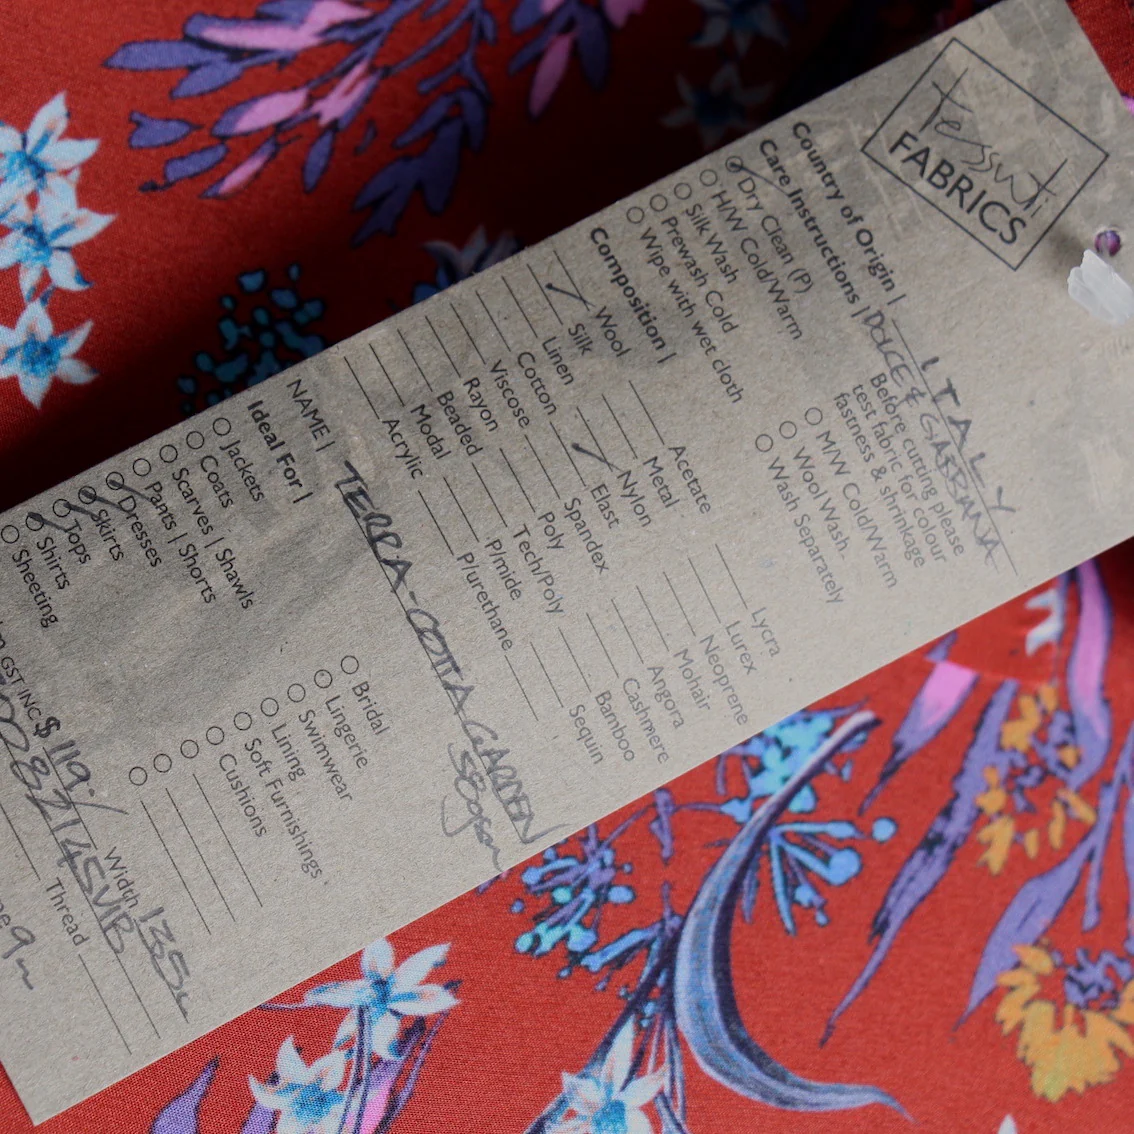 tessuti
FABRICS
Country of Origin | ITALY
Care Instructions | DOLCE & GABBANA
Dry Clean (P)
H/W Cold/Warm
Silk Wash
Prewash Cold
Wipe with wet cloth
Before cutting please
test fabric for colour
fastness & shrinkage
M/W Cold/Warm
Wool Wash.
Wash Separately
Composition |
Wool
Silk
Linen
Cotton
Viscose
Rayon
Beaded
Modal
Acrylic
Acetate
Metal
Nylon
Elast
Spandex
Poly
Tech/Poly
P/mide
P/urethane
Lycra
Lurex
Neoprene
Mohair
Angora
Cashmere
Bamboo
Sequin
NAME | TERRA-COTTA GARDEN
58gsm
Ideal For |
Jackets
Coats
Scarves | Shawls
Pants | Shorts
Dresses
Skirts
Tops
Shirts
Sheeting
Bridal
Lingerie
Swimwear
Lining
Soft Furnishings
Cushions
GST INC $ 119./ Width 135
Thread
9m